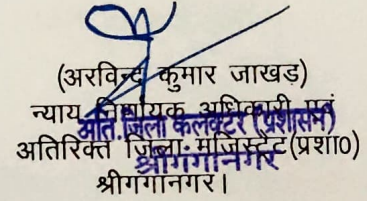 (अरविन्द कुमार जाखड़)
न्याय निर्णायक अधिकारी एवं
अति. जिला कलक्टर (प्रशासन)
अतिरिक्त जिला मजिस्ट्रेट (प्रशा0)
श्रीगंगानगर
श्रीगंगानगर।